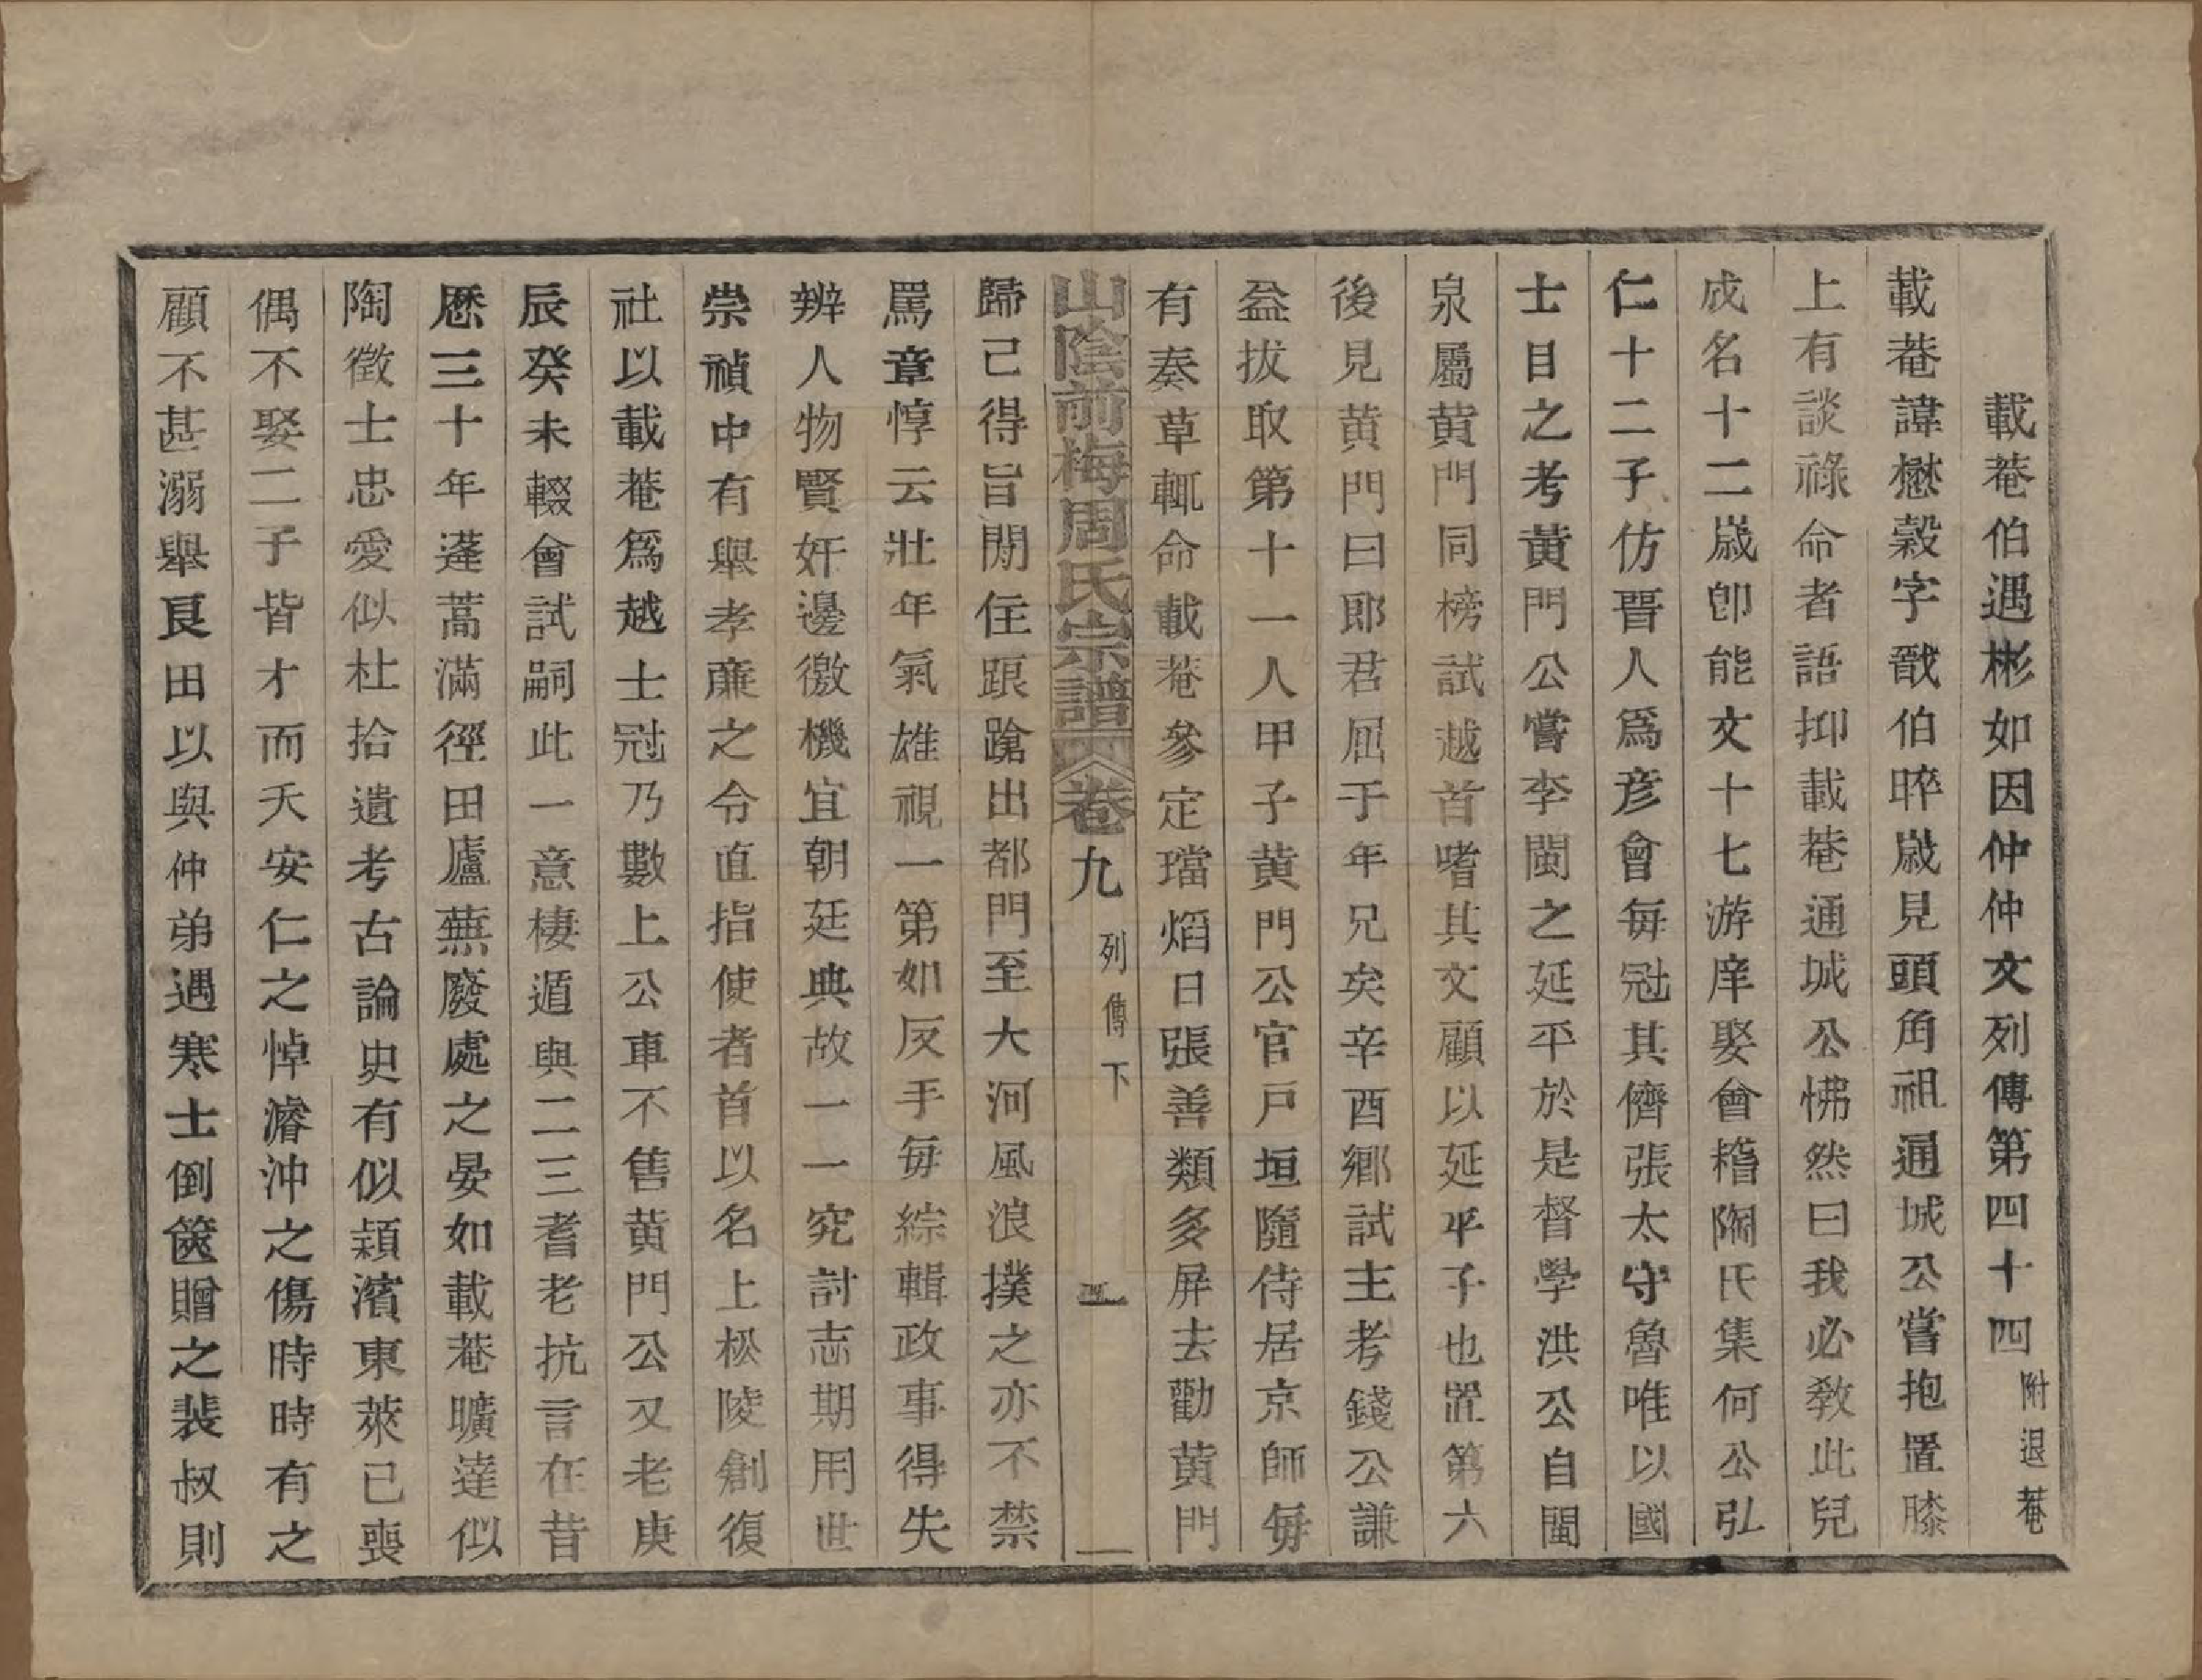 載菴伯遇彬如因仲仲文列傳第四十四附退菴
載菴諱懋穀字戩伯晬嵗見頭角祖通城公嘗抱置膝
上有談祿命者語抑載菴通城公怫然曰我必教此兒
成名十二嵗卽能文十七游庠娶會稽陶氏集何公弘
仁十二子仿晉人爲彦會每冠其儕張太守魯唯以國
士目之考黃門公嘗李閩之延平於是督學洪公自閩
泉屬黃門同榜試越首嗜其文顧以延平子也置第六
後見黃門曰郎君屈于年兄矣辛酉鄉試主考錢公謙
益拔取第十一人甲子黃門公官戸垣隨侍居京師每
有奏草輒命載菴參定璫熖日張善類多屏去勸黃門
山陰前梅周氏宗譜卷九 列傳下
歸已得旨閒住踉蹌出都門至大河風浪撲之亦不禁
罵章惇云壯年氣雄視一第如反手每綜輯政事得失
辨人物賢奸邊徼機宜朝廷典故一一究討志期用世
崇禎中有舉孝亷之令直指使者首以名上松陵創復
社以載菴爲越士冠乃數上公車不售黃門公又老庚
辰癸未輟會試嗣此一意棲遁與二三耆老抗言在昔
厯三十年蓬蒿滿徑田廬蕪廢處之晏如載菴曠達似
陶徵士忠愛似杜拾遺考古論史有似潁濱東萊已喪
偶不娶二子皆才而夭安仁之悼濬沖之傷時時有之
顧不甚溺舉良田以與仲弟遇寒士倒篋贈之裴叔則